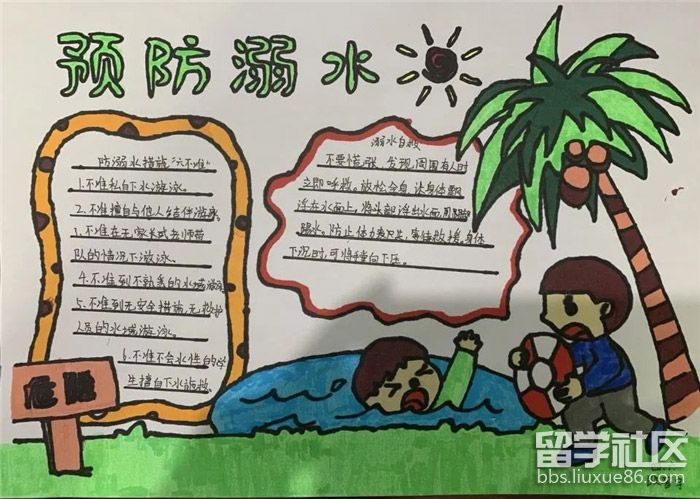 预防溺水
防溺水措施"六不准"
1.不准私自下水游泳。
2.不准擅自与他人结伴游泳。
3.不准在无家长或老师带
队的情况下游泳。
4.不准到不熟悉的水域游泳
5.不准到无安全措施,无救护
人员的水域游泳。
6.不准不会水性的学
生擅自下水施救。
溺水自救
不要慌张,发现周围有人时
立即呼救,放松全身,让身体飘
浮在水面上,将头部浮出水面,用脚
踢水。防止体力丧失,等待救援,身体
下沉时,可将掌向下压。
危险
留学社区
bbs.liuxue86.com